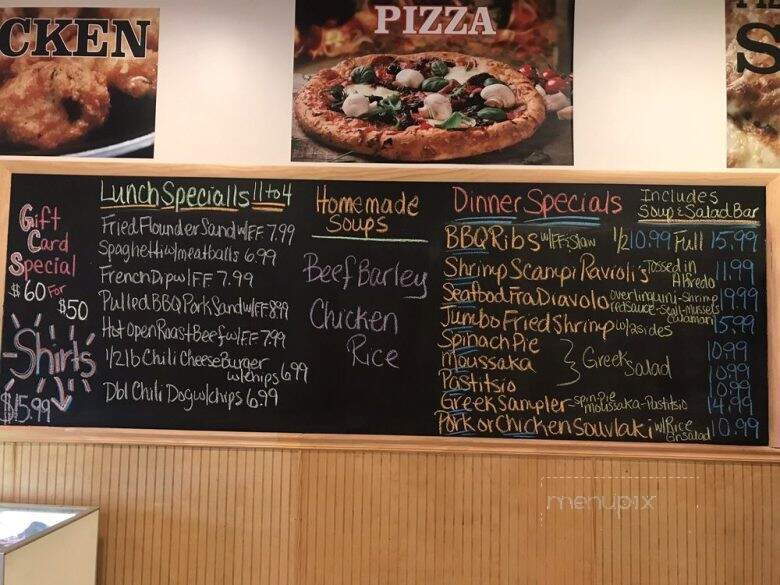 CKEN
PIZZA
S
Gift
Card
Special
$60 For
$50
Shirts
$15.99
Lunch Specialls 11 to 4
Fried Flounder Sand w/FF 7.99
Spaghetti w/meatballs 6.99
French Dip w/FF 7.99
Pulled BBQ Pork Sand w/FF 8.99
Hot Open Roast Beef w/FF 7.99
1/2 lb Chili Cheese Burger
w/chips 6.99
Dbl Chili Dog w/chips 6.99
Homemade
Soups
Beef Barley
Chicken
Rice
Dinner Specials
Includes
Soup & Salad Bar
BBQ Ribs w/FF & Slaw 1/2 10.99 Full 15.99
Shrimp Scampi Ravioli's Tossed in Alfredo 11.99
Seafood Fra Diavolo over linguini - shrimp 19.99
red sauce - scall - mussels
calamari
Jumbo Fried Shrimp w/2 sides 15.99
Spinach Pie 10.99
Moussaka } Greek Salad 10.99
Pastitsio 10.99
Greek Sampler - spin pie 14.99
moussaka - Pastitsio
Pork or Chicken Souvlaki w/Rice 10.99
menupix